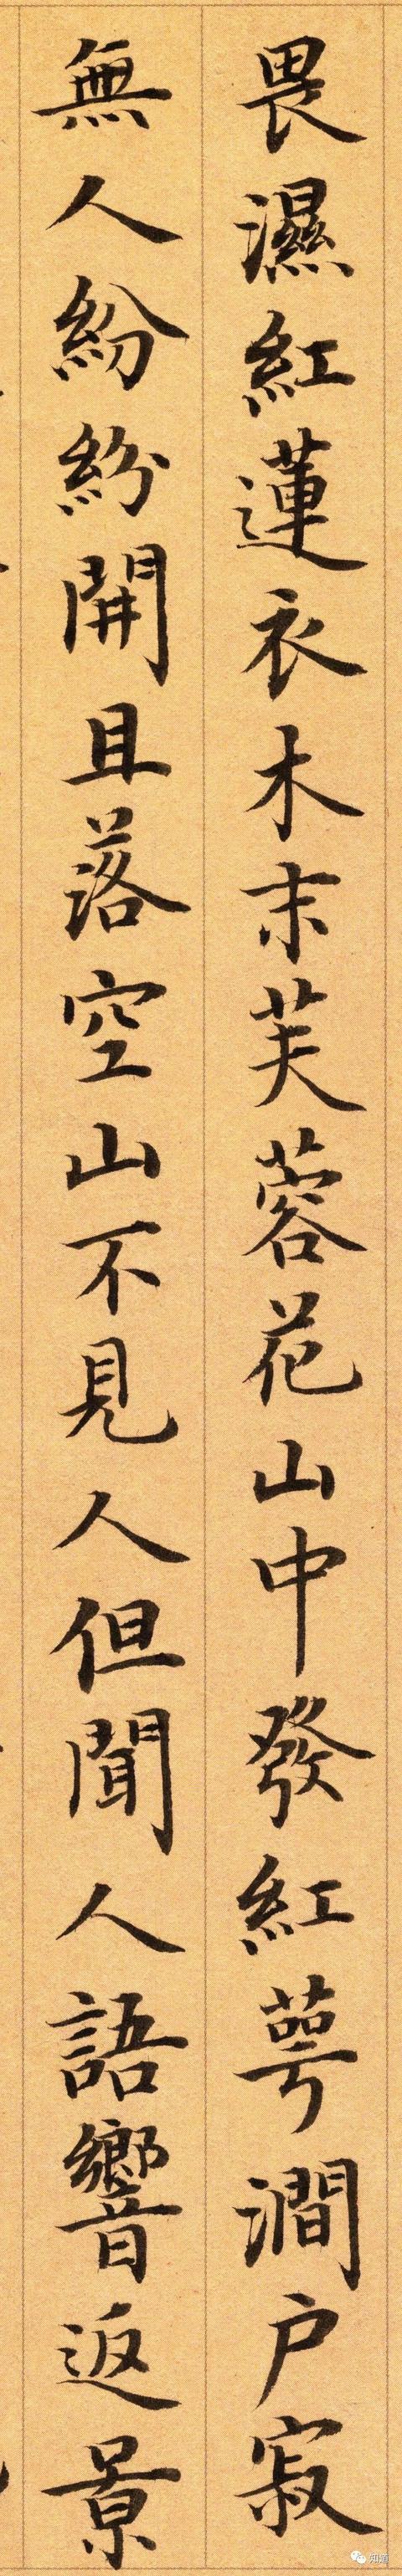 畏濕紅蓮衣木末芙蓉花山中發紅萼澗户寂
無人紛紛開且落空山不見人但聞人語響返景
知乎